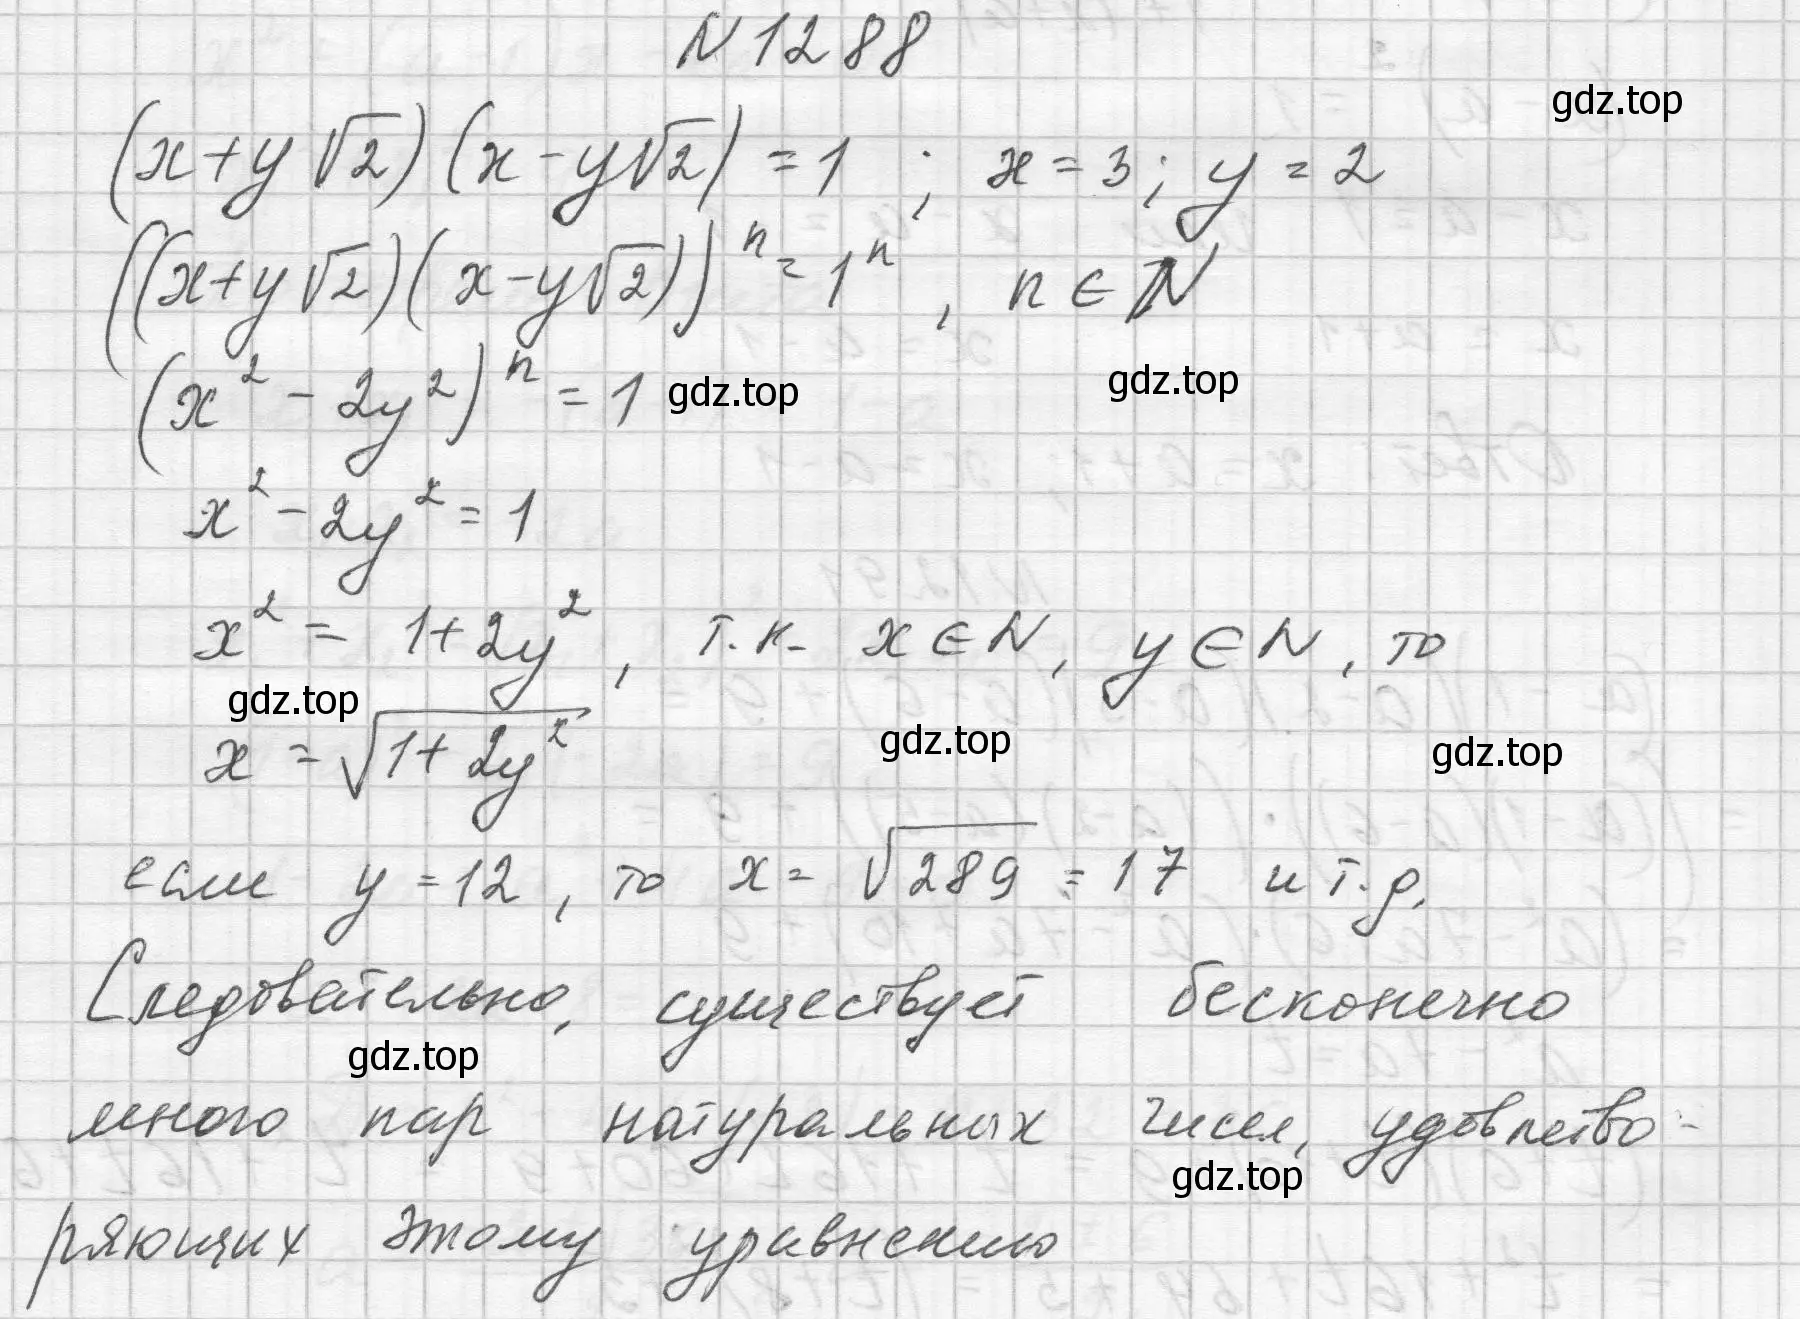 N 1288
gdz.top
(x+y√2)(x-y√2) = 1 ; x = 3; y = 2
((x+y√2)(x-y√2))ⁿ = 1ⁿ, n ∈ N
(x² - 2y²)ⁿ = 1
gdz.top
gdz.top
x² - 2y² = 1
x² = 1 + 2y², т.к. x ∈ N, y ∈ N, то
gdz.top
x = √(1 + 2y²)
gdz.top
gdz.top
если y = 12, то x = √289 = 17 и т.д.
Следовательно, существует бесконечно
gdz.top
много пар натуральных чисел, удовлетво-
gdz.top
ряющих этому уравнению